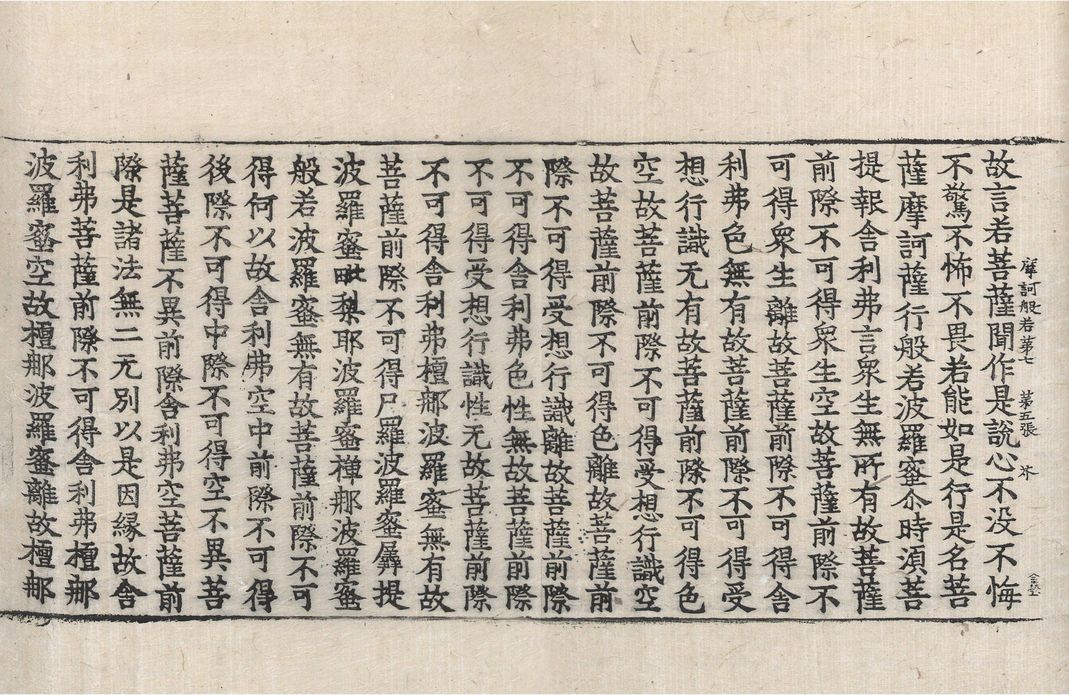 故言若菩薩聞作是說心不没不悔
摩訶般若第七 第五張 芥
不驚不怖不畏若能如是行是名菩
薩摩訶薩行般若波羅蜜尒時湏菩
提報舍利弗言衆生無所有故菩薩
前際不可得衆生空故菩薩前際不
可得衆生離故菩薩前際不可得舍
利弗色無有故菩薩前際不可得受
想行識无有故菩薩前際不可得色
空故菩薩前際不可得受想行識空
故菩薩前際不可得色離故菩薩前
際不可得受想行識離故菩薩前際
不可得舍利弗色性無故菩薩前際
不可得受想行識性无故菩薩前際
不可得舍利弗檀那波羅蜜無有故
菩薩前際不可得尸羅波羅蜜羼提
波羅蜜毗梨耶波羅蜜禅那波羅蜜
般若波羅蜜無有故菩薩前際不可
得何以故舍利弗空中前際不可得
後際不可得中際不可得空不異菩
薩菩薩不異前際舍利弗空菩薩前
際是諸法無二无別以是因緣故舍
利弗菩薩前際不可得舍利弗檀那
波羅蜜空故檀那波羅蜜離故檀那